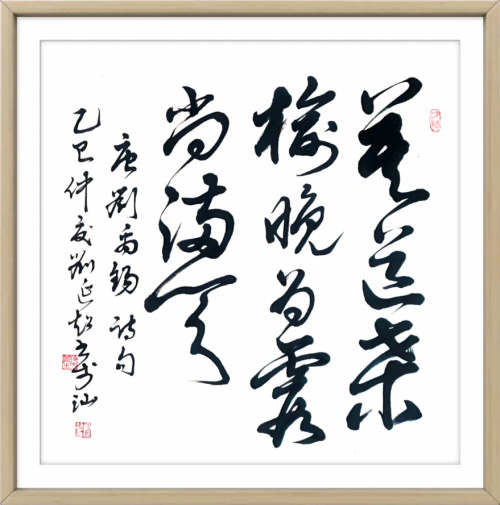 莫道桑
榆晚为霞
尚满天
唐刘禹锡诗句
乙巳仲夏刘延超书于汕